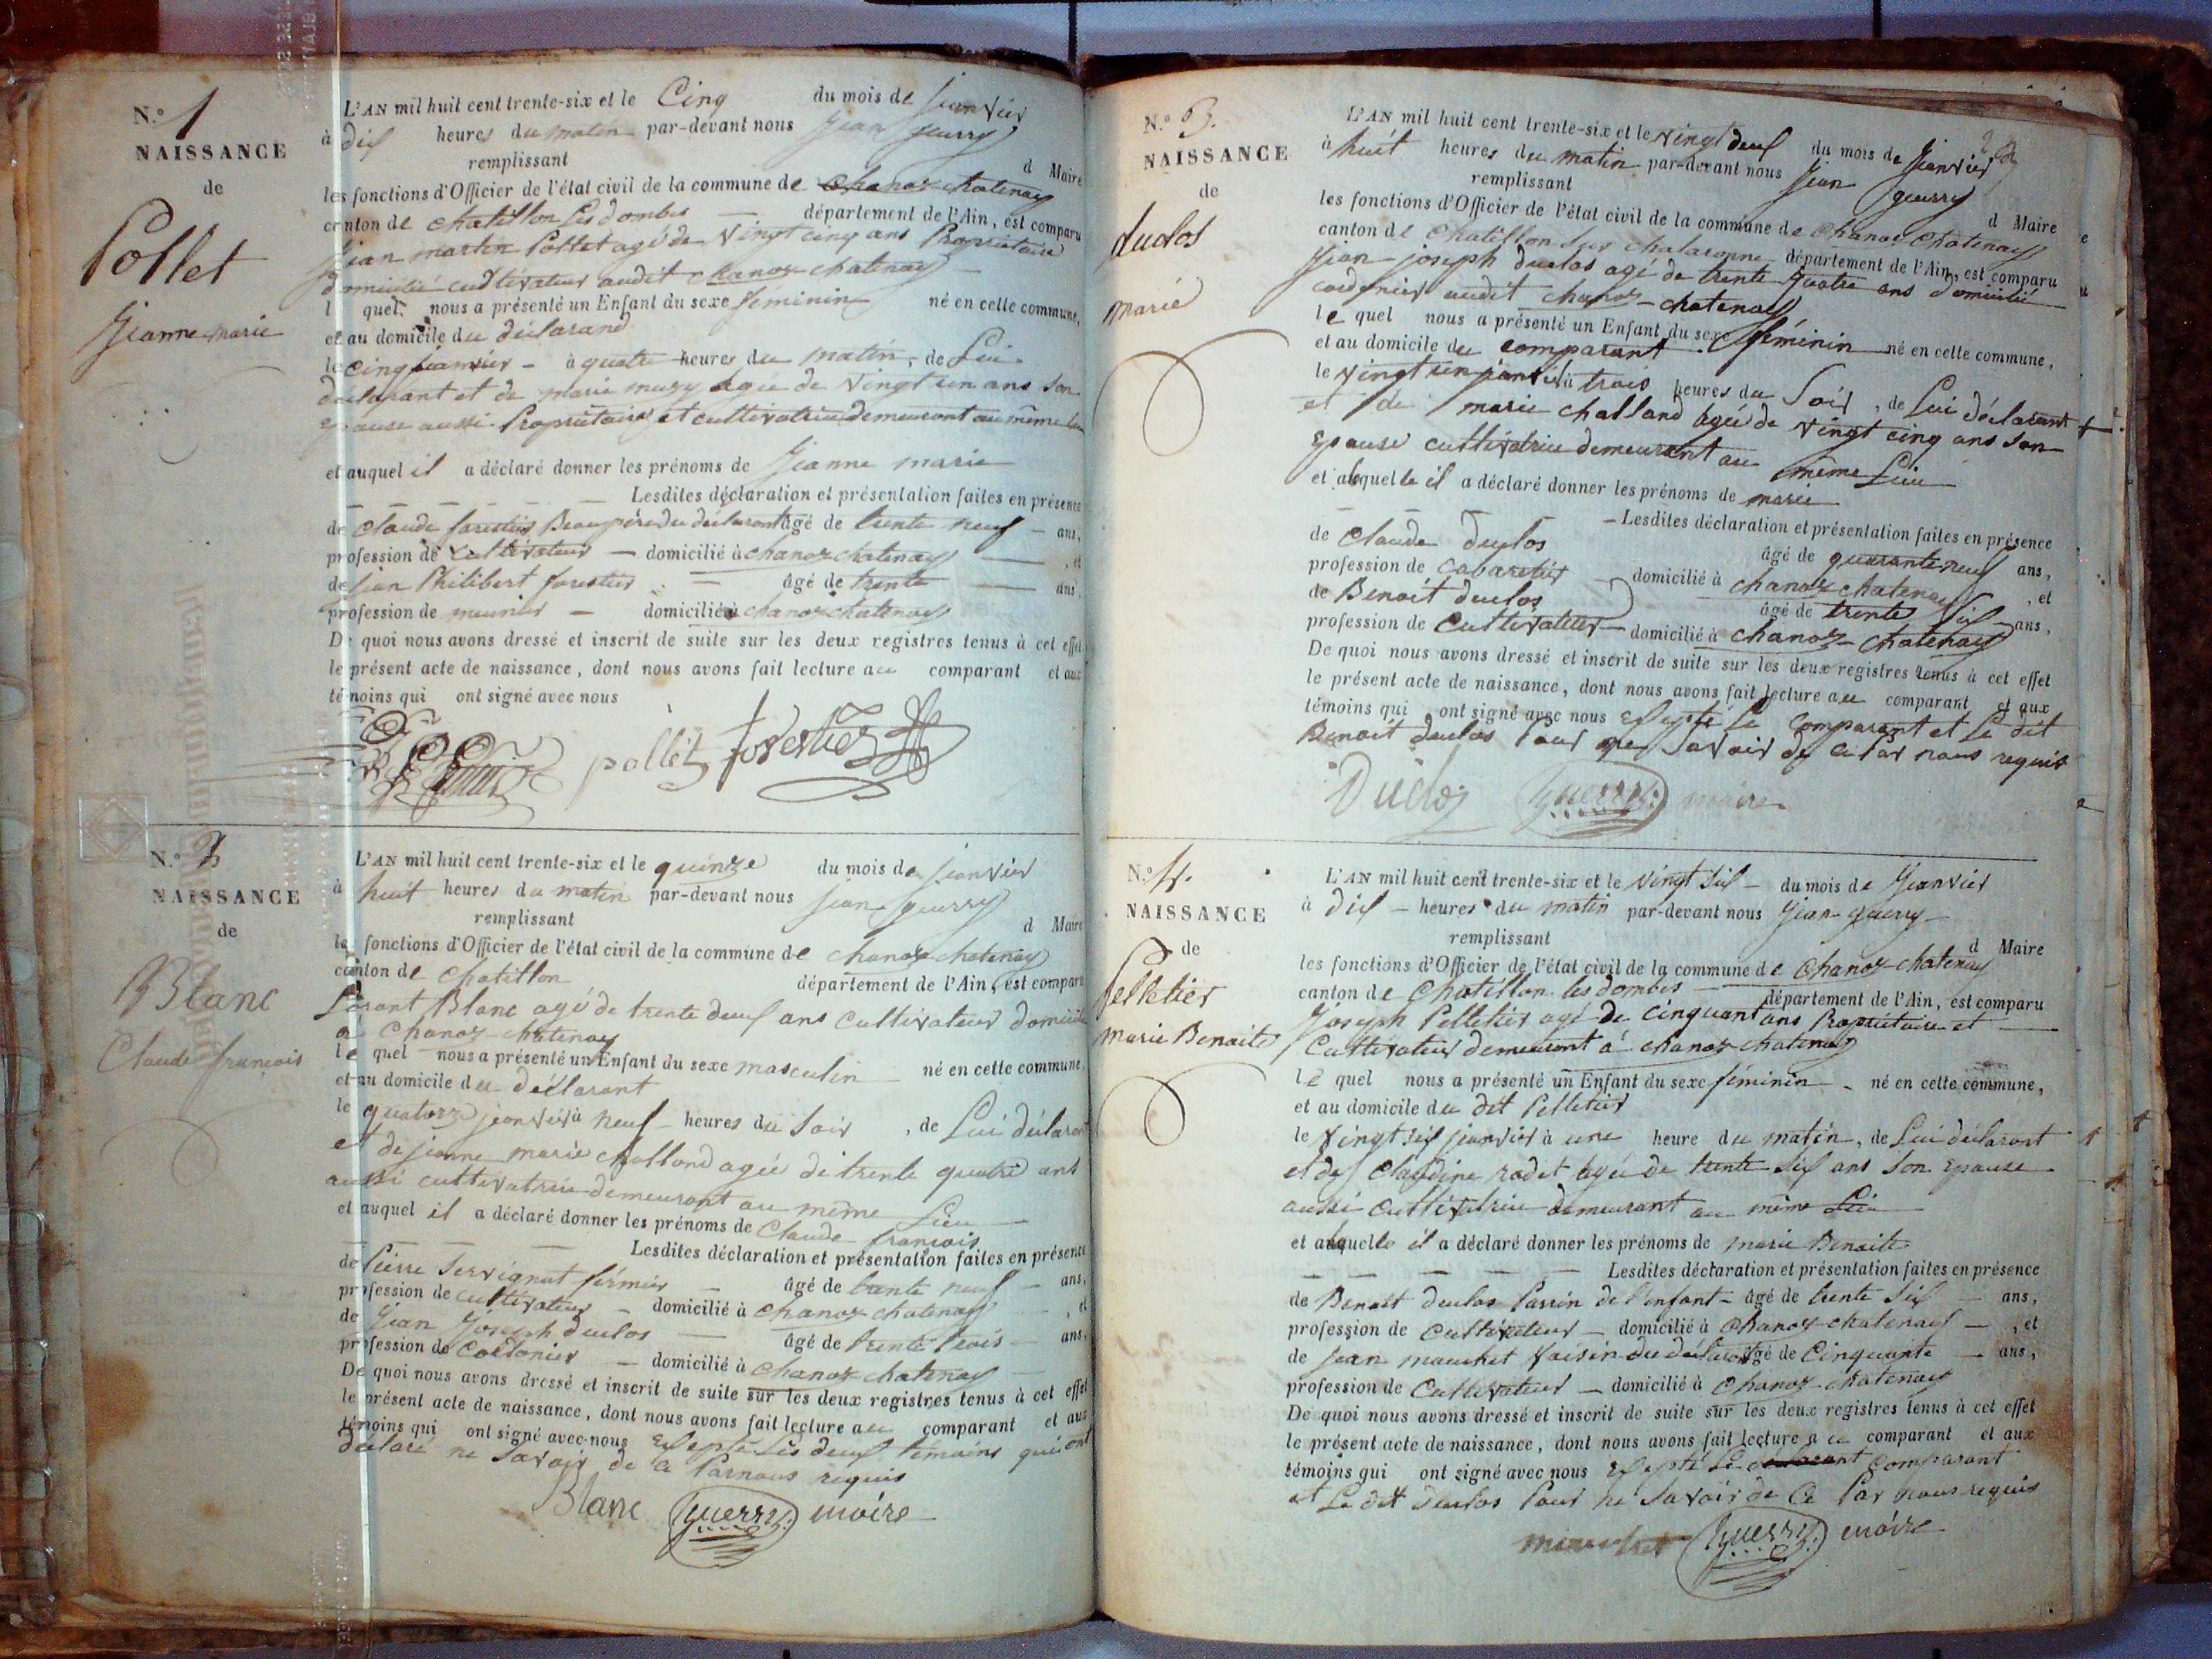 N.º 1
NAISSANCE
de
Pollet
Jeanne marie
L'AN mil huit cent trente-six et le Cinq du mois de janvier
à dix heures du matin par-devant nous Jean guerry
remplissant d Maire
les fonctions d'Officier de l'état civil de la commune de Chanoz chatenay
canton de chatillon les dombes — département de l'Ain, est comparu
Jean martin Pollet agé de vingt cinq ans Propriétaire
domicilié cultivateur audit chanoz chatenay
l quel nous a présenté un Enfant du sexe féminin né en cette commune,
et au domicile du déclarand
le cinq janvier - à quatre heures du matin, de Lui
déclarant et de marie mury agée de vingt un ans son
epouse aussi Propriétaire et cultivatrice demeurant au même lieu
et auquel il a déclaré donner les prénoms de Jeanne marie
Lesdites déclaration et présentation faites en présence
de Claude forestier Beaupère du déclarant âgé de trente neuf — ans,
profession de cultivateur — domicilié à chanoz chatenay — , et
de jean Philibert forestier — âgé de trente — ans,
profession de meunier — domicilié à chanoz chatenay
De quoi nous avons dressé et inscrit de suite sur les deux registres tenus à cet effet
le présent acte de naissance, dont nous avons fait lecture au comparant et aux
témoins qui ont signé avec nous
pollet forestier
N.º 2
NAISSANCE
de
Blanc
Claude françois
L'AN mil huit cent trente-six et le quinze du mois de janvier
à huit heures du matin par-devant nous jean guerry
remplissant d Maire
les fonctions d'Officier de l'état civil de la commune de chanoz chatenay
canton de chatillon département de l'Ain, est comparu
Lorant Blanc agé de trente deux ans cultivateur domicilié
a Chanoz chatenay
le quel nous a présenté un Enfant du sexe masculin — né en cette commune,
et au domicile du déclarant
le quatorze janvier à neuf heures du soir, de Lui déclarant
et de jeanne marie challand agée de trente quatre ans
aussi cultivatrice demeurant au même Lieu
et auquel il a déclaré donner les prénoms de Claude françois
Lesdites déclaration et présentation faites en présence
de Pierre Servignat férmier — âgé de trente neuf — ans,
profession de cultivateur — domicilié à chanoz chatenay — , et
de Jean Joseph duclos — âgé de trente trois ans,
profession de Cordonier — domicilié à Chanoz chatenay
De quoi nous avons dressé et inscrit de suite sur les deux registres tenus à cet effet
le présent acte de naissance, dont nous avons fait lecture au comparant et aux
témoins qui ont signé avec nous Exepté les deux témoins qui ont
déclaré ne savoir de ce Par nous requis
Blanc guerry maire
N.º 3.
NAISSANCE
de
duclos
marie
L'AN mil huit cent trente-six et le vingt deux du mois de Janvier
à huit heures du matin par-devant nous Jean guerry
remplissant d Maire
les fonctions d'Officier de l'état civil de la commune de Chanoz Chatenay
canton de Chatillon sur chalaronne département de l'Ain, est comparu
Jean joseph duclos agé de trente quatre ans domicilié
cordonier audit chanoz - chatenay
le quel nous a présenté un Enfant du sexe féminin né en cette commune,
et au domicile du comparant
le vingt un janvier à trois heures du Soir, de Lui déclarant
et de marie challand agée de vingt cinq ans son
Epouse cultivatrice demeurant au même Lieu
et a laquelle il a déclaré donner les prénoms de marie
— Lesdites déclaration et présentation faites en présence
de Claude duclos âgé de quarante neuf ans,
profession de Cabaretier domicilié à chanoz chatenay , et
de Benoit duclos âgé de trente six ans,
profession de Cultivateur — domicilié à chanoz - chatenay
De quoi nous avons dressé et inscrit de suite sur les deux registres tenus à cet effet
le présent acte de naissance, dont nous avons fait lecture au comparant et aux
témoins qui ont signé avec nous Exepté Le Comparant et Le dit
Benoit duclos Pour ne savoir de ce Par nous requis
Duclos guerry maire
N.º 4.
NAISSANCE
de
Pelletier
marie Benoite
L'AN mil huit cent trente-six et le vingt six — du mois de Janvier
à dix — heures du matin par-devant nous Jean guerry
remplissant d Maire
les fonctions d'Officier de l'état civil de la commune de Chanoz chatenay
canton de Chatillon les dombes — département de l'Ain, est comparu
Joseph Pelletier agé de cinquant ans Propriétaire et —
Cultivateur demeurant à chanoz chatenay
le quel nous a présenté un Enfant du sexe féminin - né en cette commune,
et au domicile du dit Pelletier
le vingt six janvier à une heure du matin, de Lui déclarant
et de Claudine rodet agée de trente six ans son Epouse
aussi cultivatrice demeurant au même Lieu
et a laquelle il a déclaré donner les prénoms de marie Benoite
Lesdites déclaration et présentation faites en présence
de Benoit duclos Parrin de l'enfant - âgé de trente six — ans,
profession de Cultivateur — domicilié à Chanoz chatenay — , et
de Jean mauchet voisin du déclarant âgé de Cinquante — ans,
profession de Cultivateur — domicilié à Chanoz chatenay
De quoi nous avons dressé et inscrit de suite sur les deux registres tenus à cet effet
le présent acte de naissance, dont nous avons fait lecture au comparant et aux
témoins qui ont signé avec nous Exepté le comparant
et Le dit duclos Pour ne savoir de Ce Par nous requis
guerry maire